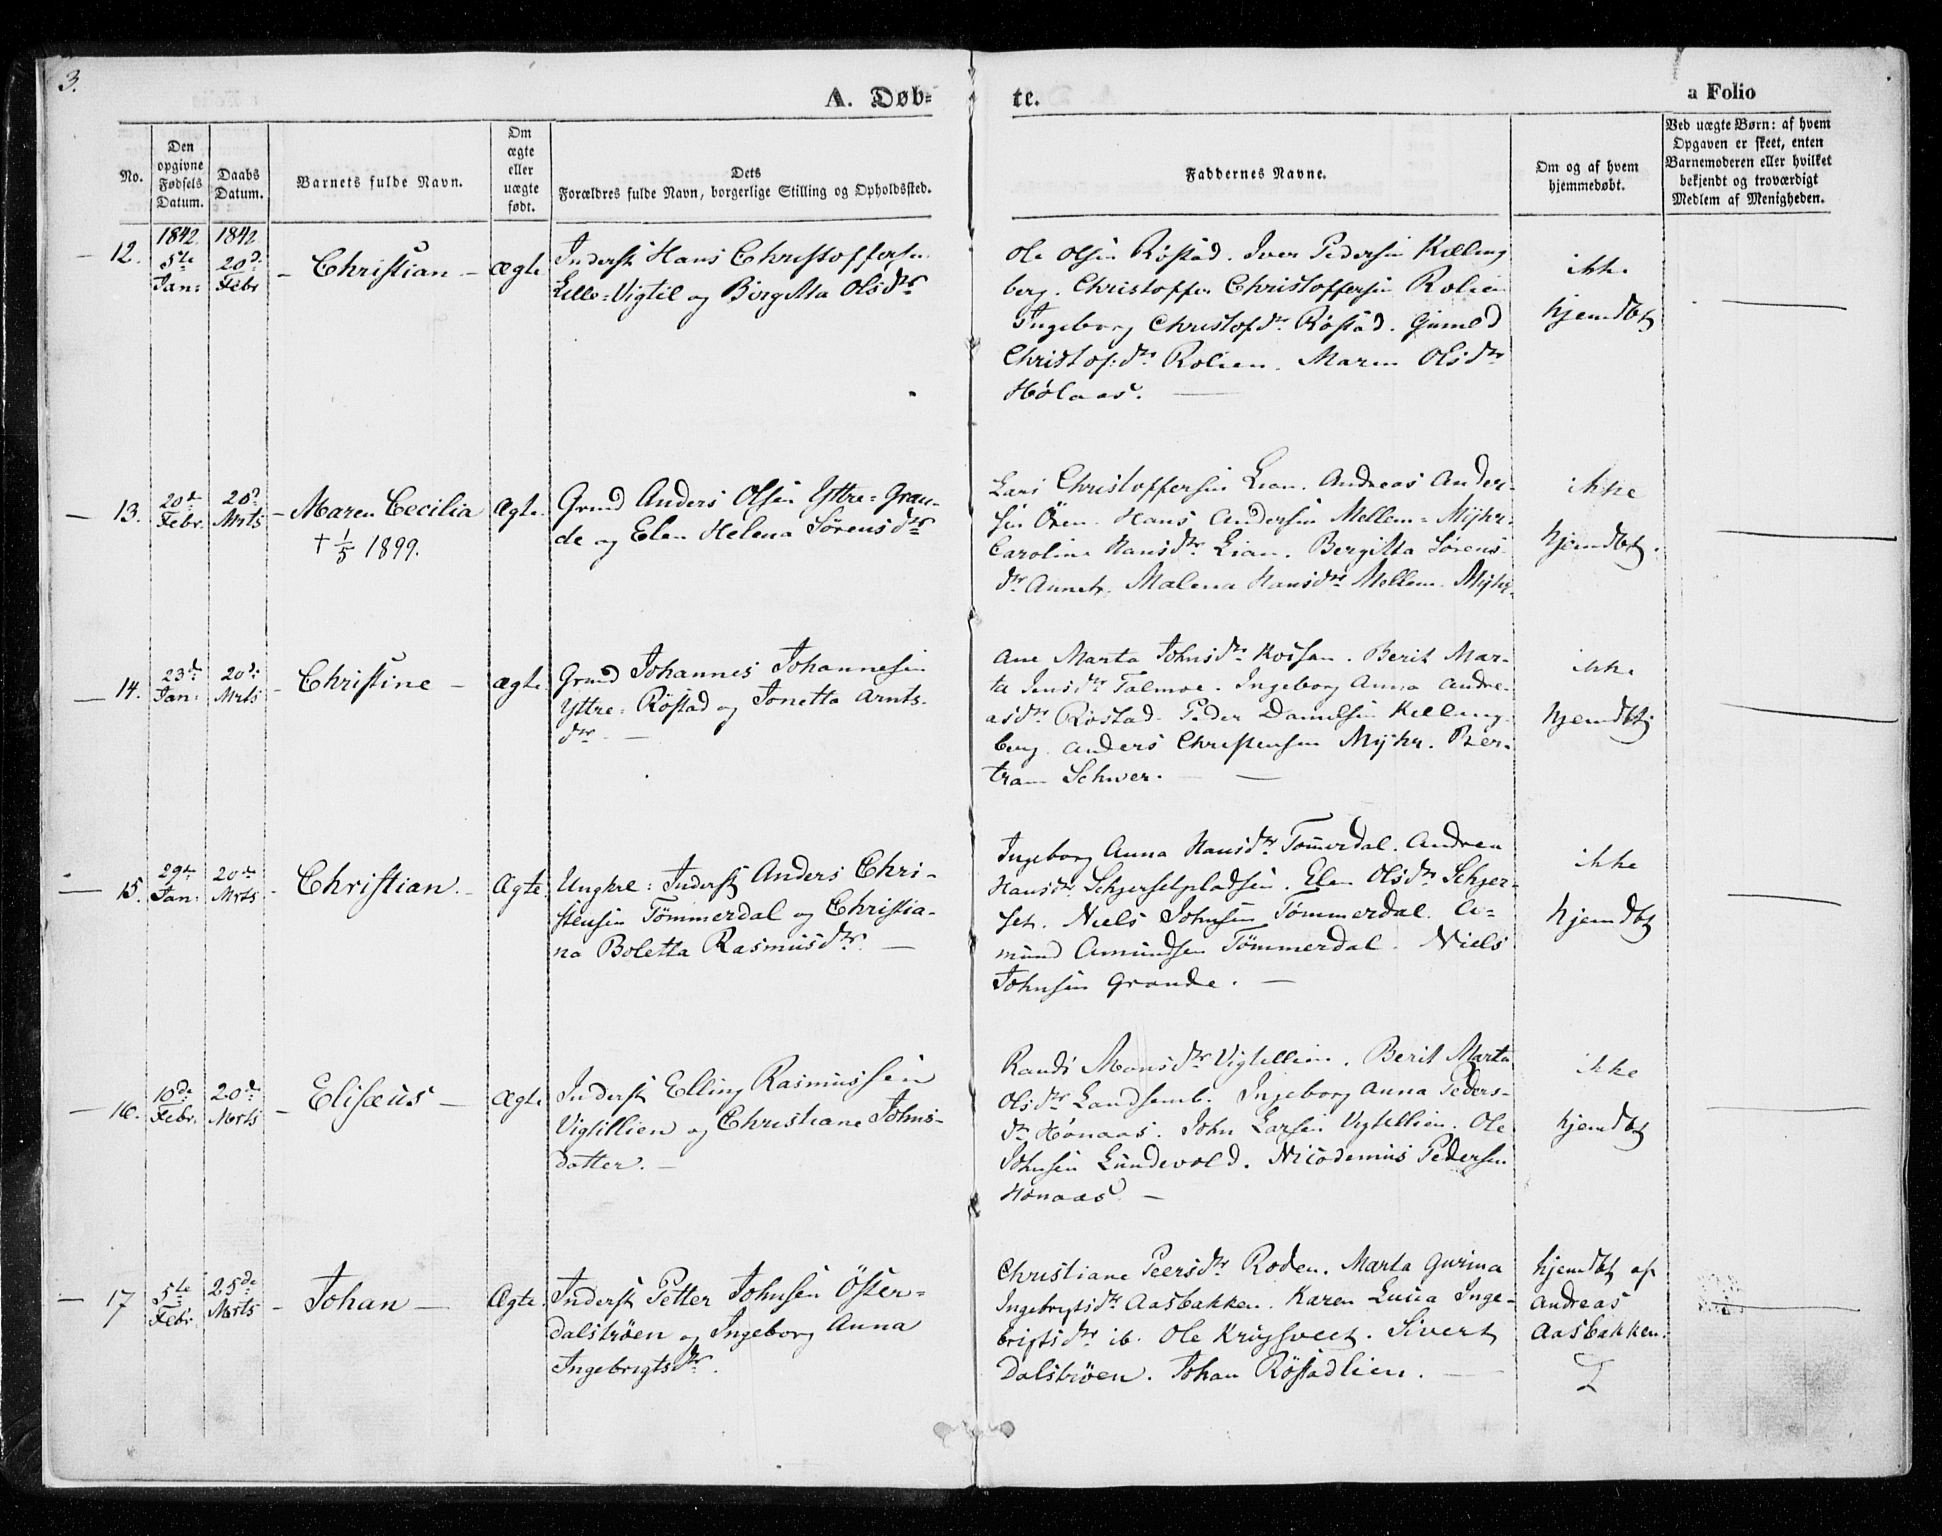 3.
A. Døb-
te.
a Folio
No.
Den opgivne Fødsels Datum.
Daabs Datum.
Barnets fulde Navn.
Om ægte eller uægte født.
Dets
Forældres fulde Navn, borgerlige Stilling og Opholdssted.
Faddernes Navne.
Om og af hvem hjemmedøbt.
Ved uægte Børn: af hvem Opgaven er skeet, enten Barnemoderen eller hvilket bekjendt og troværdigt Medlem af Menigheden.
12. 1842. 5te Jan: 1842 20de Febr - Christian - ægte
Inderst Hans Christoffersen
Lille-Vigtil og Birgitta Olsdtr
Ole Olsen Røstad. Iver Pedersen Kælling
berg. Christoffer Christoffersen Rolien
Ingeborg Christofdtr Røstad. Guneld
Christof:dtr Rolien. Maren Olsdtr
Hølaas.
ikke
hjemdbt
13. 20de Febr. 20de Mrts - Maren Cecilia Ægte.
† 1/5 1899.
Grmd Anders Olsen Yttre-Gran-
de og Elen Helena Sørensdtr
Lars Christoffersen Lian. Andreas Ander-
sen Ören. Hans Andersen Mellem-Myhr.
Caroline Hansdtr Lian. Bergitta Sørens-
dtr Malena Hansdtr Mellem-Myhr.
ikke
hjemdbt.
14. 23de Jan: 20de Mrts - Christine - ægte
Grmd Johannes Johannesen
Yttre-Röstad og Jonetta Arnts-
dtr.
Ane Marta Johnsdtr. Berit Mar-
ta Jensdtr Talmoe. Ingeborg Anna Andre-
asdtr Röstad. Peder Danielsen Kælling-
berg. Anders Christensen Myhr. Ber-
tram Schwer.
ikke
hjemdbt
15. 29de Jan: 20de Mrts - Christian. - Ægte
Ungkrl: Inderst Anders Chri-
stensen Tömmerdal og Christia-
na Boletta Rasmusdtr.
Ingeborg Anna Hansdtr Tömmerdal. Andrea
Hansdtr Schjersetpladsen. Elen Olsdtr Schjer-
set. Niels Johnsen Tömmerdal. A-
mund Amundsen Tömmerdal. Niels
Johnsen Grande.
ikke
hjemdbt
16. 10de Febr. 20de Mrts - Elisæus - Ægte
Inderst Elling Rasmussen
Vigtillien og Christiane Johns-
datter.
Randi Monsdtr Vigtellien. Berit Marta
Olsdtr Landsemb. Ingeborg Anna Peders-
dtr Hönaas. John Larsen Vigtellien. Ole
Johnsen Lundevold. Nicodemus Pedersen
Hönaas.
ikke
hjemdbt
17 5te Febr. 25de Mrts - Johan - Ægte.
Inderst Petter Johnsen Öster-
dalströen og Ingeborg Anna
Ingebrigtsdtr.
Christiane Peersdtr Roden. Marta Gurina
Ingebrigtsdtr Aasbakken. Karen Lucia Inge-
brigtsdtr ib. Ole Krigsveet. Sivert
Dalströen. Johan Röstadlien.
hjemdbt af
Andreas
Aasbakken.